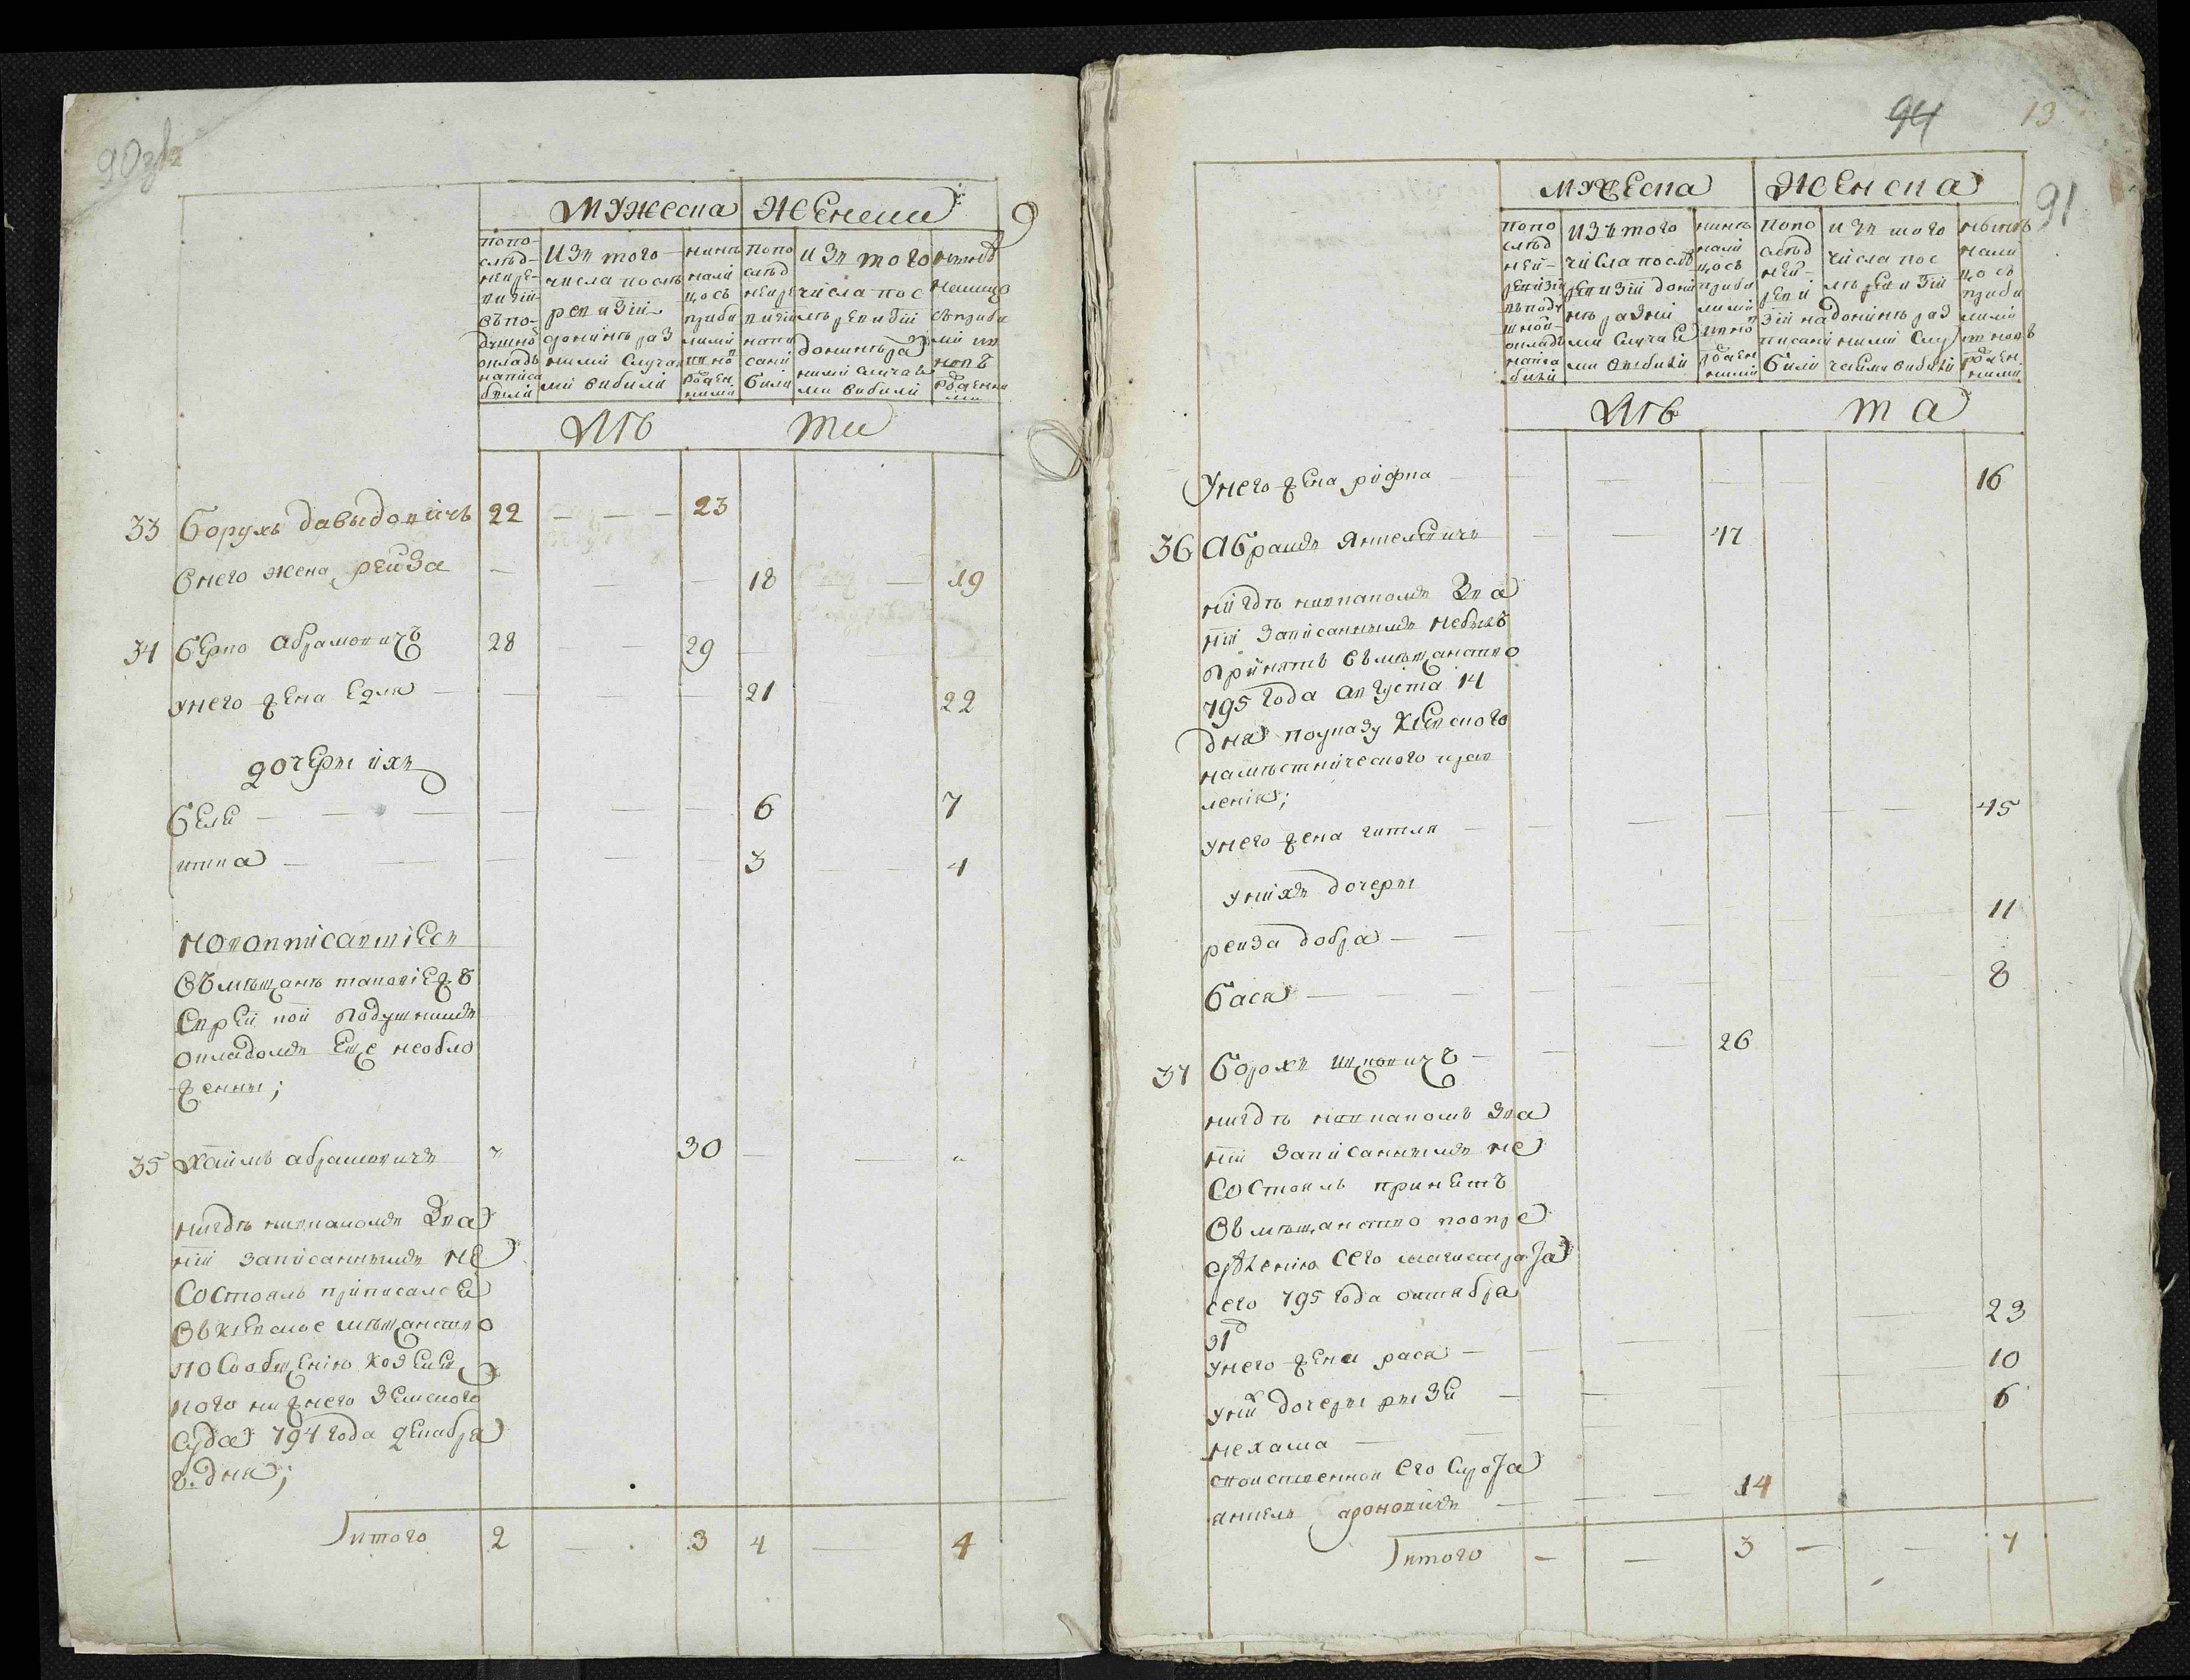 90
мужеска женска 9
попо-
слѣд-
ней ре-
визіи
въ по-
душно
окладъ
написа
были
изъ того
числа послѣ
ревизіи
донинѣ раз
ними случая
ми вибили
нинѣ
нали
цось
приби
лими
и но
рожден
ними
попо
слѣд
ней ре
визіи
напи
сани
били
изъ того
числа пос
лѣ ревизіи
донинѣ раз
ними случая
ми вибили
налицо
съ приби
ми и
новъ
рожденни
ми
Лѣ та
33 Борухъ давыдовичъ 22 — — — 23
Снего жена рейза — — — 18 — 19
34 берко абрамовичъ 28 — — 29 —
унего жена Едля — — — — 21 — 22
дочеры ихъ
бейля — — — — — — 6 7
итка — — — — — 3 — — 4
новоппісавшіесь
въмѣщанъ таковіежъ
еврей кои подушнимъ
окладомъ еще необло
женны;
35 хаимъ абрамовичъ " 30 — — "
нигдѣ нивпакомъ зва
ніи записаннымъ не
состоялъ приписалсѧ
въ кіевское мѣщанство
по сообщенію
ного нижнего земского
суда 794 года декабря
8. дня;
Ітого 2 — . 3 4 — 4
94 13
91
мужеска женска
попо
слѣд
ней-
ревізіи
въ поду
шной-
окладъ
написа
били
изъ того
числа послѣ
ревизіи дони
нѣ разни
ми случая
ми вибили
нинѣ
нали
цось
приби
лими
и но
рожден
ними
попо
слѣд
ней-
реви
зіи на
писани
били
изъ того
числа пос
лѣ ревизіи
донинѣ раз
ними слу
чаями вибили
нынѣ
нали
цо съ
приби
лими
и новъ
рожден
ними
Лѣ та
Унего жена рифка — — — — — 16
36 Абрамъ Янкелевичъ — — 47
нигдѣ нивпакомъ зва
ніи записаннымъ небылъ
принятъ въмѣщанство
795 года августа 14
дня поуказу кіевского
намѣстнического прав
ленія;
унего жена гитля — — — — — — 45
унихъ дочеры
рейза добра — — — — — — 11
бася — — — — — — 8
37 Борохъ ицковичъ — — — 26
нигдѣ нивпакомъ зва
ніи записаннымъ не
состоялъ принятъ
въ мѣщанство поопре
дѣленію сего магистрата
сего 795 года октября
31
Унего жена рася — — — — — 23
Унихъ дочеры рызя — — — 10
нехама — — — 6
свойственной его сирота
янкель ароновичъ — — — 14
Ітого — — 3 — — 7